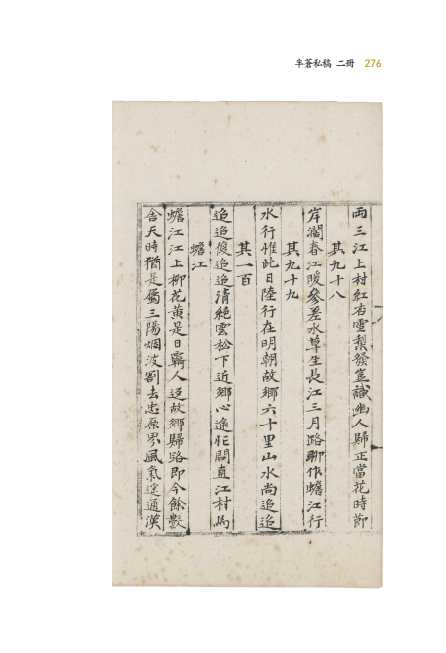 半蒼私稿 二冊 276
兩三江上村紅杏雪梨發豈識幽人歸正當花時節
其九十八
岸濶春江暖參差水草生長江三月路聊作蟾江行
其九十九
水行惟此日陸行在明朝故鄉六十里山水尚迢迢
其一百
迢迢復迢迢清絶雲松下近鄉心逾忙闗直江村馬
蟾江
蟾江江上柳花黃是日覊人返故鄉歸路即今餘數
舍天時猶是屬三陽烟波割去忠原界風氣淀通漢